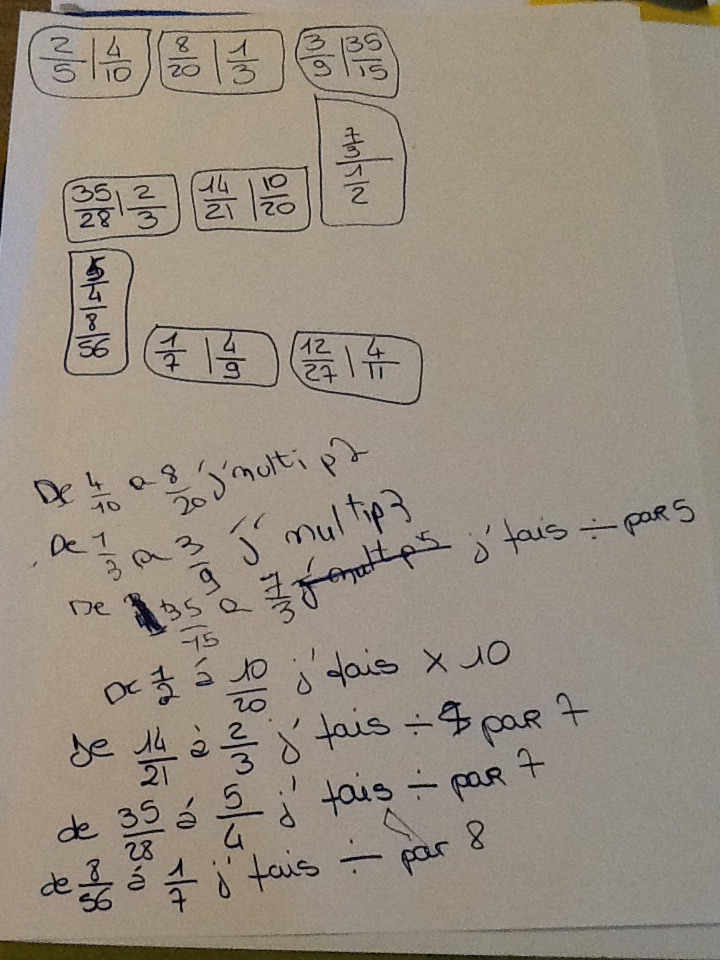 2/5 | 4/10 8/20 | 1/3 3/9 | 35/15
7/3 | 1/2
35/28 | 2/3 14/21 | 10/20
5/4 | 8/56
1/7 | 4/9 12/27 | 4/11
De 4/10 a 8/20 j'multip2
De 1/3 a 3/9 j' multip3
De 35/15 a 7/3 j'multip5 j'fais ÷ par 5
De 1/2 à 10/20 j'fais × 10
De 14/21 à 2/3 j'fais ÷ par 7
de 35/28 à 5/4 j'fais ÷ par 7
de 8/56 à 1/7 j'fais ÷ par 8